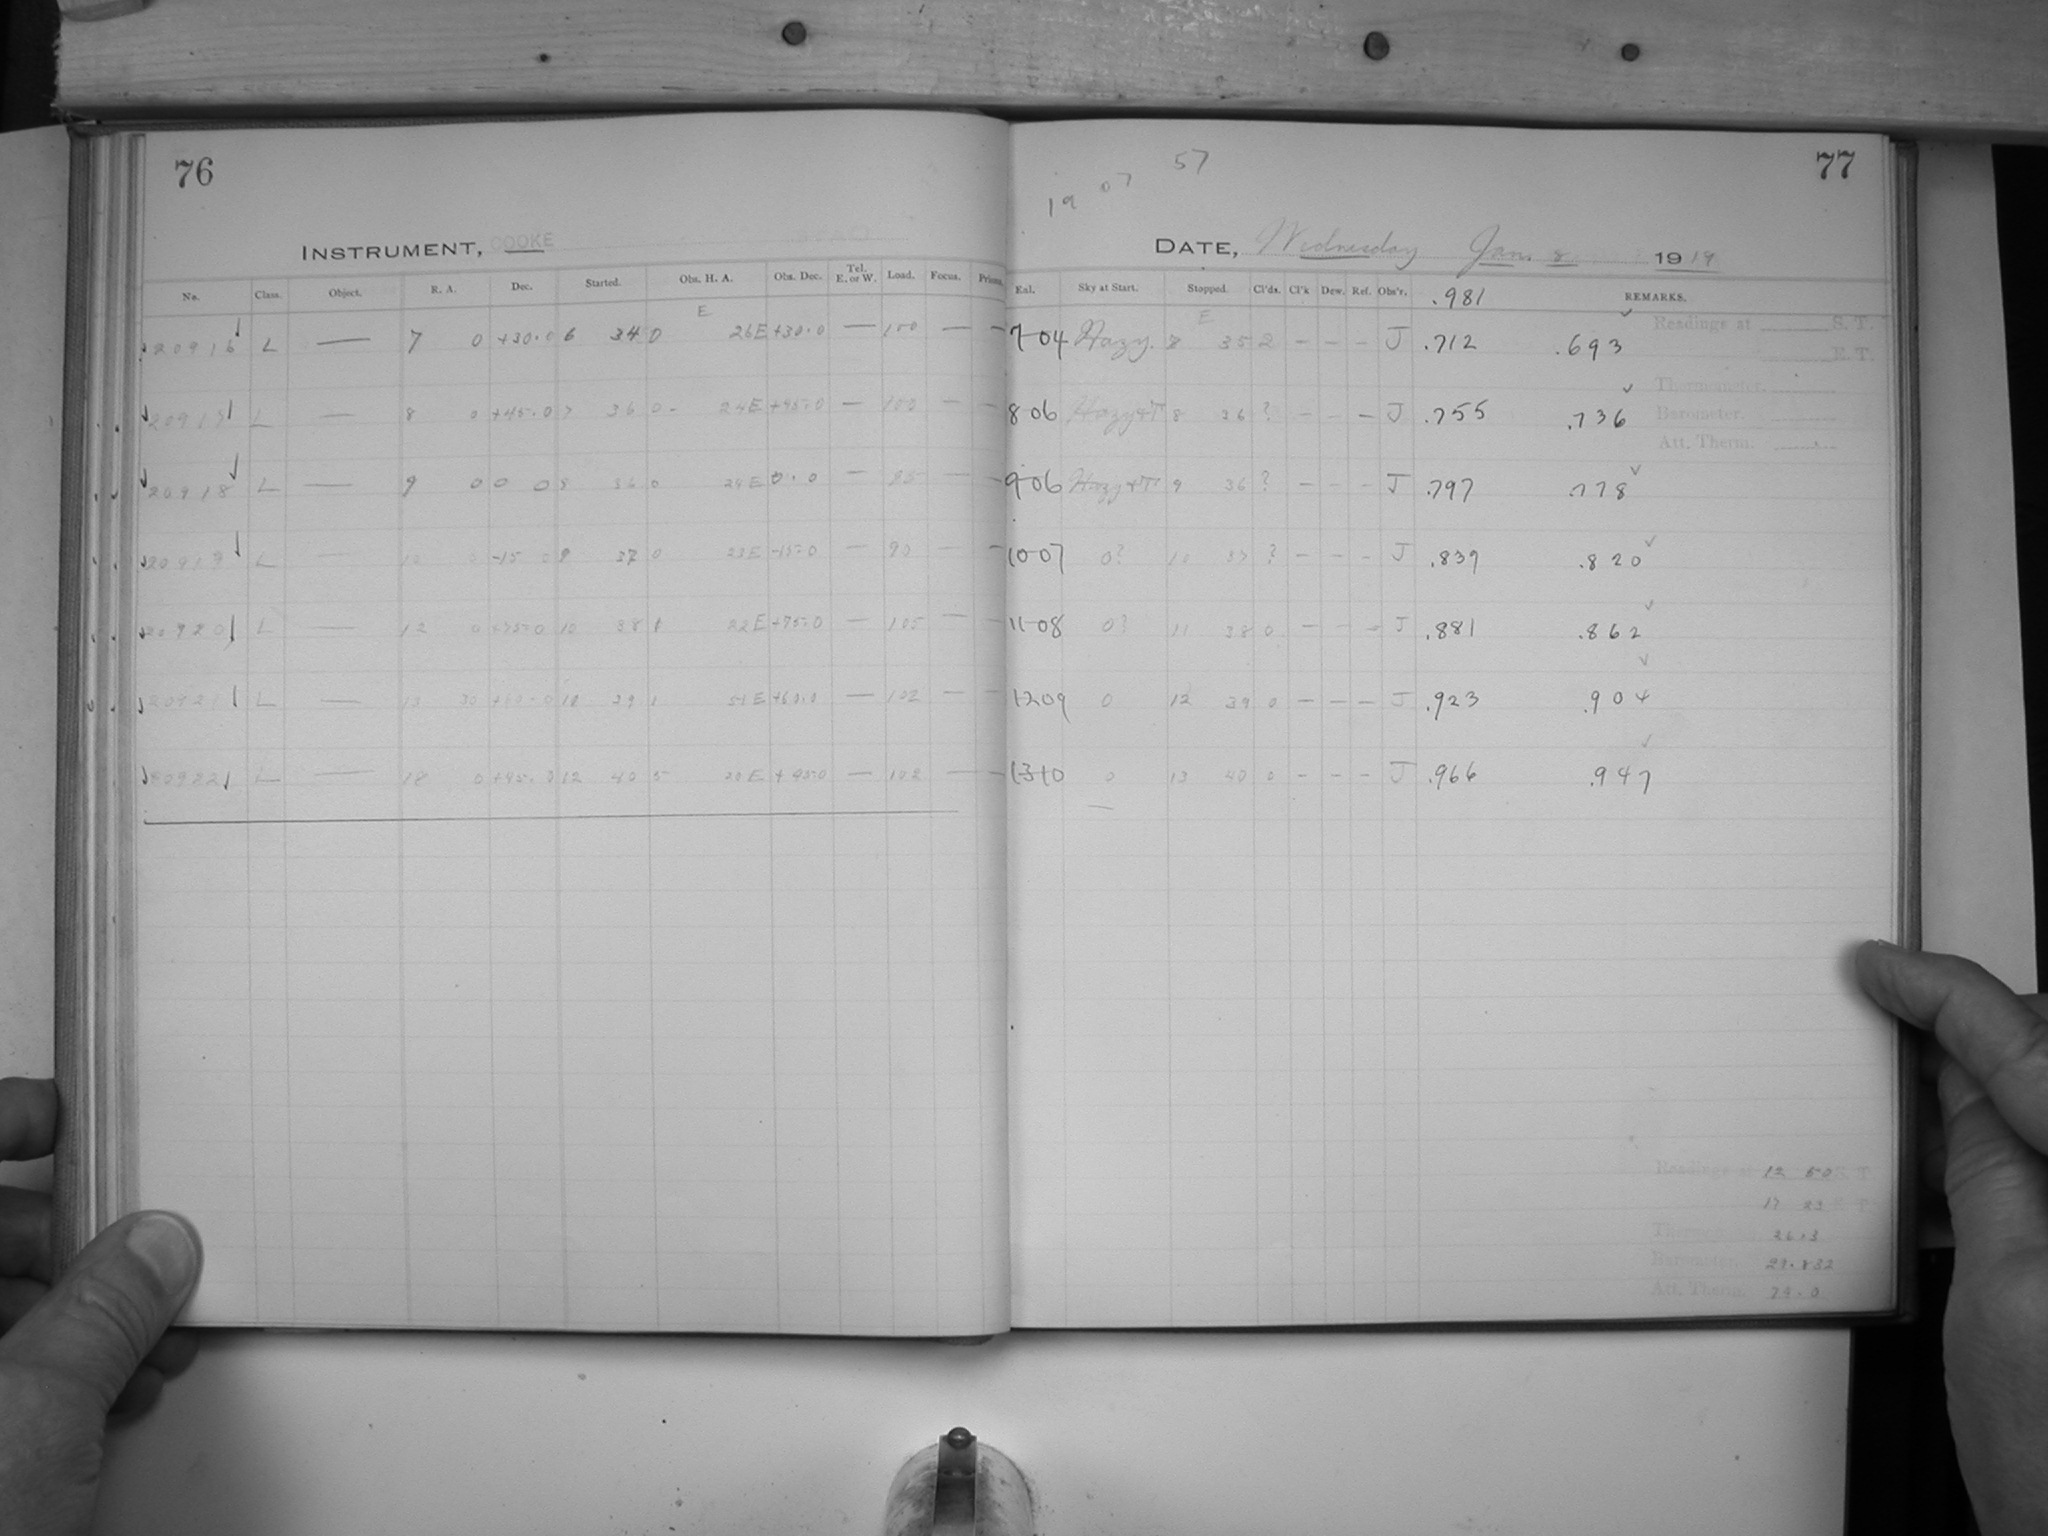 76
INSTRUMENT, COOKE
No. Class. Object. R. A. Dec. Started. Obs. H. A. Obs. Dec. Tel. E. or W. Load. Focus. Prisms.
E
20916 L — 7 0 +30.0 6 34 0 26E +30.0 — 100 — —
20917 L — 8 0 +45.0 7 36 0 24E +45.0 — 100 — —
20918 L — 9 0 0 0 8 36 0 24E 0.0 — 95 — —
20919 L — 10 0 -15 0 9 37 0 23E -15.0 — 90 — —
20920 L — 12 0 +75.0 10 38 1 22E +75.0 — 105 — —
20921 L — 13 30 +60.0 11 39 1 51E +60.0 — 102 — —
20922 L — 18 0 +45.0 12 40 5 20E +45.0 — 102 — —
77
57
19 07
DATE, Wednesday Jan. 8 1919
Exl. Sky at Start. Stopped. Cl'ds. Cl'k Dew. Ref. Obs'r. .981 REMARKS.
E
7 04 Hazy. 7 35 2 — — — J .712 .693
8 06 Hazy+T 8 36 ? — — — J .755 .736
9 06 Hazy+T 9 36 ? — — — J .797 .778
10 07 0? 10 37 ? — — — J .839 .820
11 08 0? 11 38 0 — — — J .881 .862
12 09 0 12 39 0 — — — J .923 .904
13 10 0 13 40 0 — — — J .966 .947
Readings at S. T.
E. T.
Thermometer.
Barometer.
Att. Therm.
Readings at 12 50 S. T.
17 23 E. T.
Thermometer 26.3
Barometer. 29.832
Att. Therm.